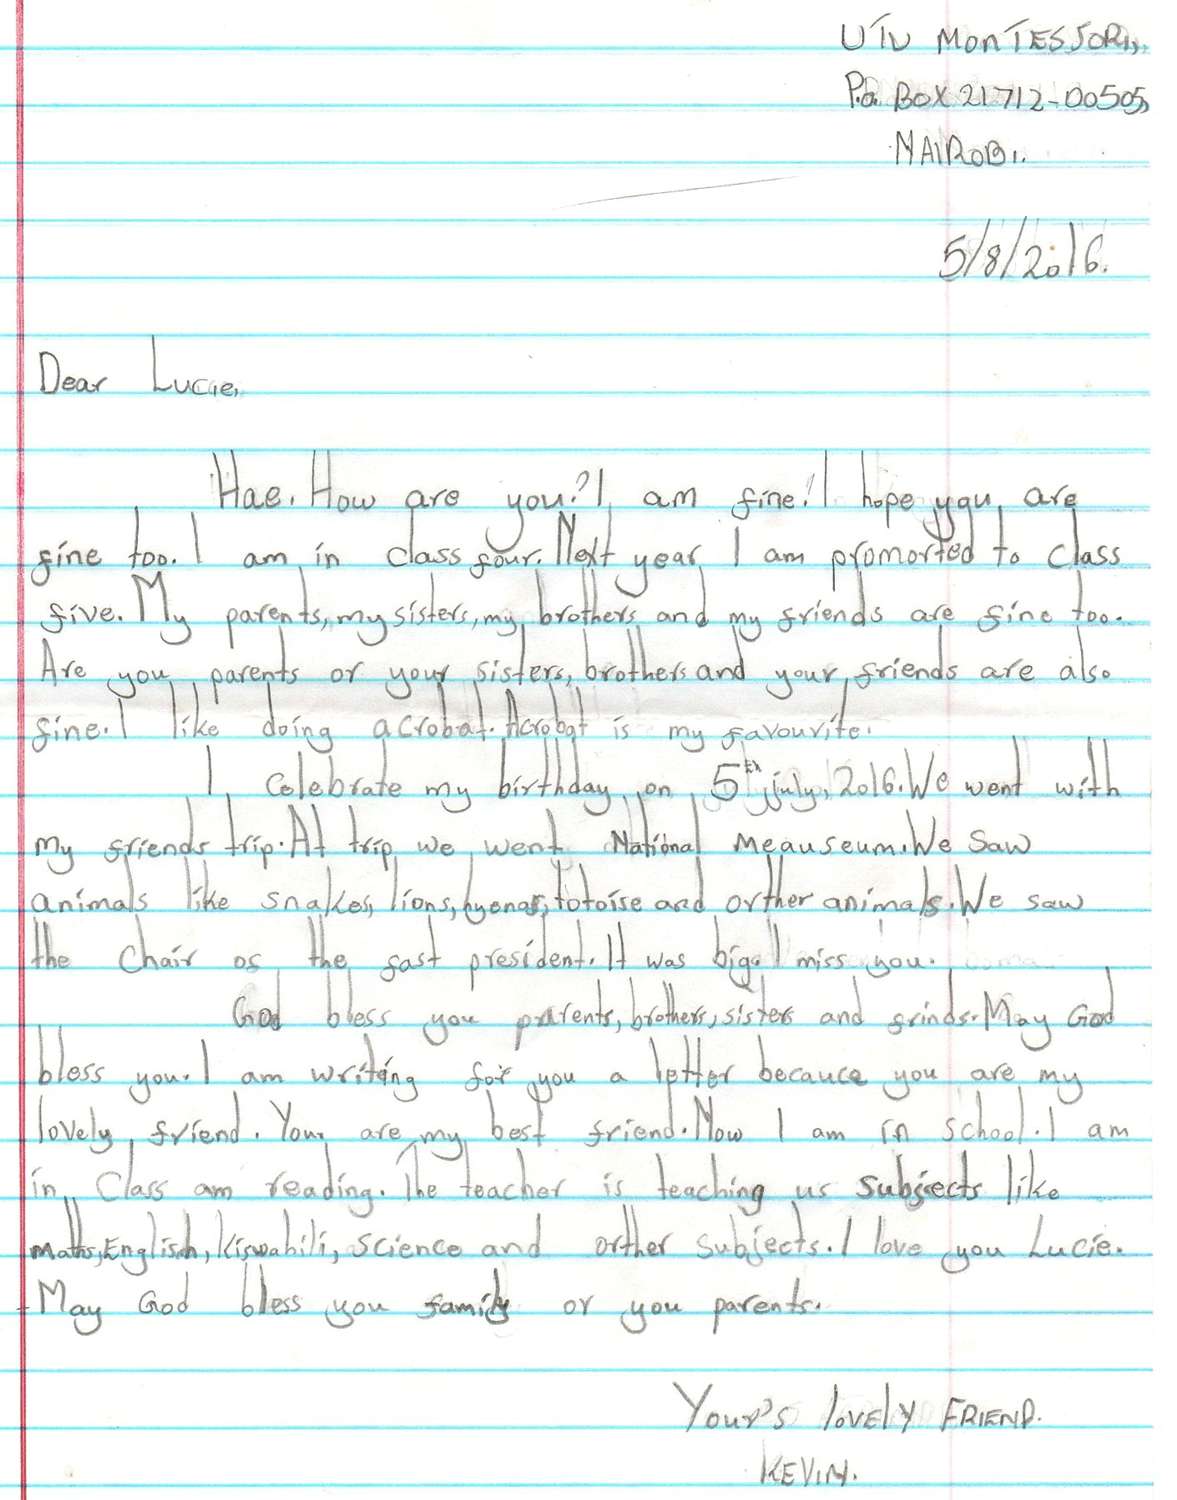 UTU MONTESSORI,
P.o. BOX 21712-00505,
NAIROBI.
5/8/2016.
Dear Lucie,
Hae. How are you? I am fine. I hope you are
fine too. I am in class four. Next year I am promorted to class
five. My parents, my sisters, my brothers and my friends are fine too.
Are you parents or your sisters, brothers and your friends are also
fine. I like doing acrobat. Acrobat is my favourite.
I celebrate my birthday on 5th july, 2016. We went with
my friends trip. At trip we went National Meauseum. We saw
animals like snakes, lions, hyenas, totoise and orther animals. We saw
the chair of the fast president. It was big. I miss you.
God bless you parents, brothers, sisters and frinds. May God
bless you. I am writing for you a letter because you are my
lovely friend. Your are my best friend. Now I am in school. I am
in class am reading. The teacher is teaching us subjects like
maths, English, Kiswahili, science and orther subjects. I love you Lucie.
May God bless you family or you parents.
Your's lovely FRIEND.
KEVIN.